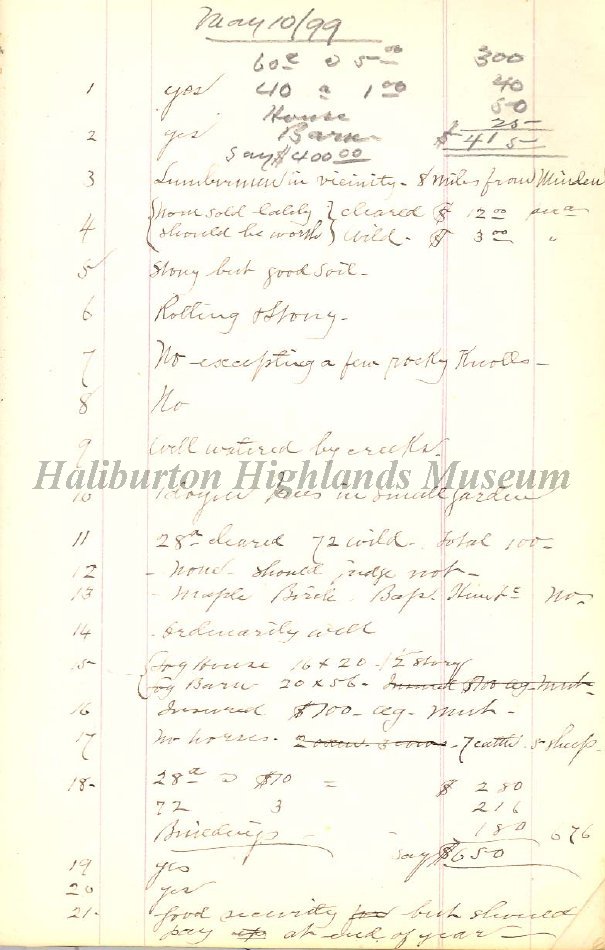 May 10/99
60ac @ 5 00 300
1 yes 40 a 1 00 40
House 50
2 yes Barn 25
Say $400 00 $ 415
3 Lumbermen in vicinity - 8 miles from Minden
4 {none sold lately} cleared $ 12 00
{should be worth} wild - $ 3 00 "
5 Stony but good soil -
6 Rolling & Stony -
7 No - excepting a few rocky Knolls -
8 No
9 Well watered by creeks.
Haliburton Highlands Museum
10 trees in small garden
11 28a cleared 72 wild. Total 100 -
12 - None - should judge not -
13 - Maple Birch. No -
14 - Ordinarily well
15 {Log House 16 x 20 - 1½ story
{Log Barn 20 x 56 - Insured $700 ag. Mut -
16 Insured $700 - ag. Mut -
17 No horses - 2 oxen 3 cows - 7 cattle 5 sheep
18 - 28a @ $10 = $ 280
72 3 216
Buildings 180 676
Say $650
19 yes
20 yes
21 - Good security but should
pay up at end of year -